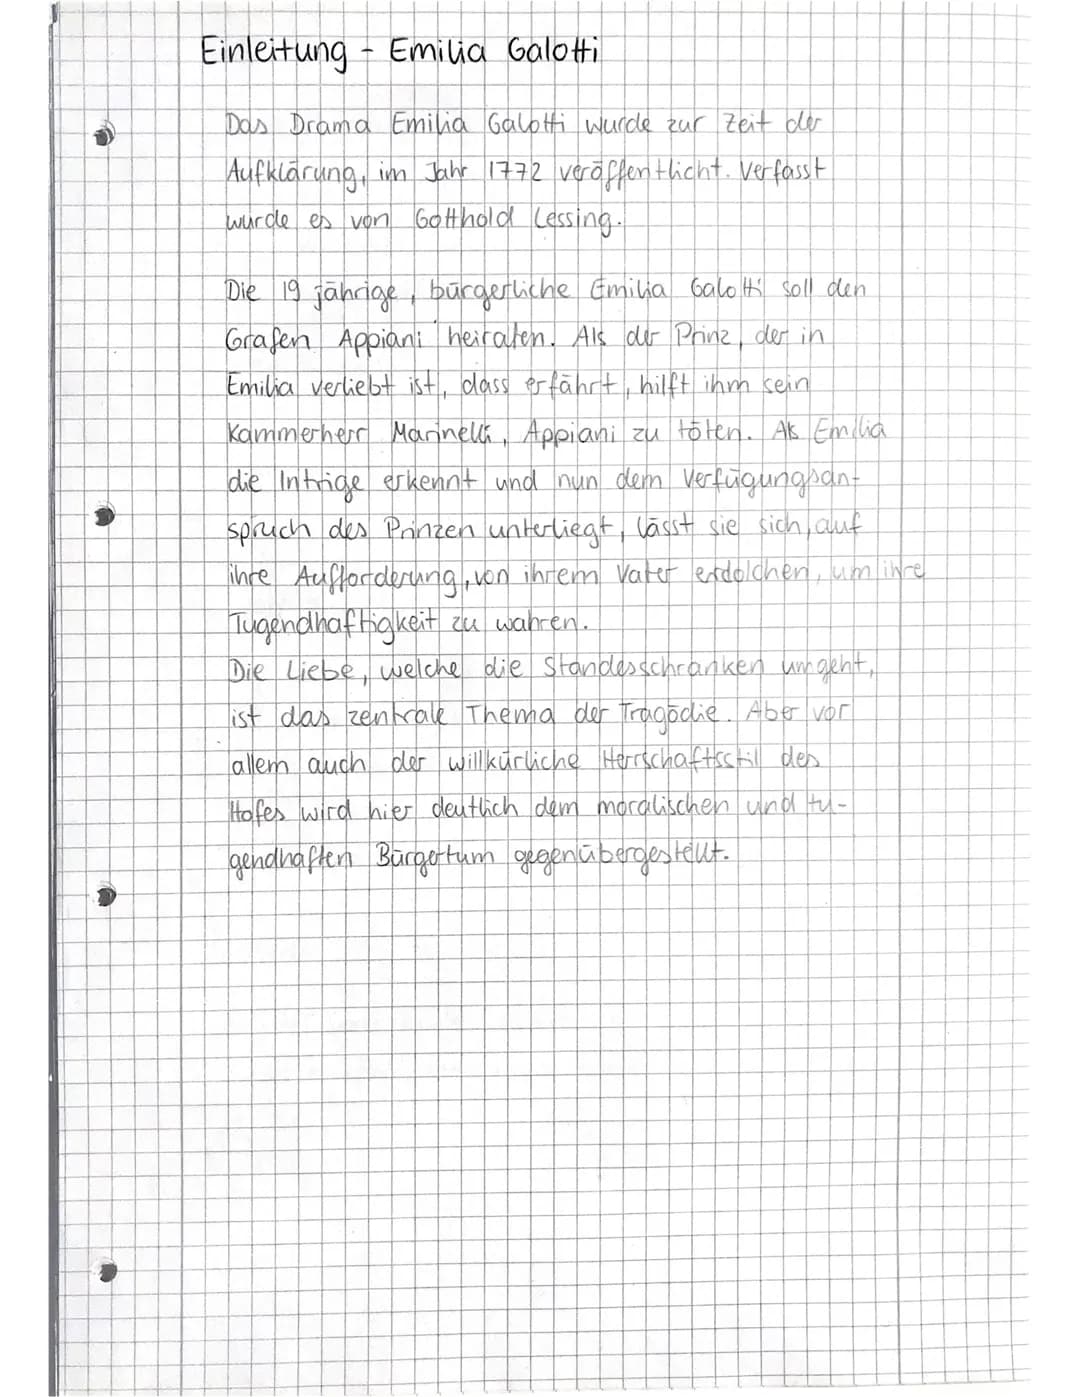 Einleitung - Emilia Galotti
Das Drama Emilia Galotti wurde zur Zeit der
Aufklärung, im Jahr 1772 veröffentlicht. Verfasst
wurde es von Gotthold Lessing.
Die 19 jährige, bürgerliche Emilia Galotti soll den
Grafen Appiani heiraten. Als der Prinz, der in
Emilia verliebt ist, dass erfährt, hilft ihm sein
Kammerherr Marinelli, Appiani zu töten. Als Emilia
die Intrige erkennt und nun dem Verfügungsan-
spruch des Prinzen unterliegt, lässt sie sich, auf
ihre Aufforderung, von ihrem Vater erdolchen, um ihre
Tugendhaftigkeit zu wahren.
Die Liebe, welche die Standesschranken umgeht,
ist das zentrale Thema der Tragödie. Aber vor
allem auch der willkürliche Herrschaftsstil des
Hofes wird hier deutlich dem moralischen und tu-
gendhaften Bürgertum gegenübergestellt.